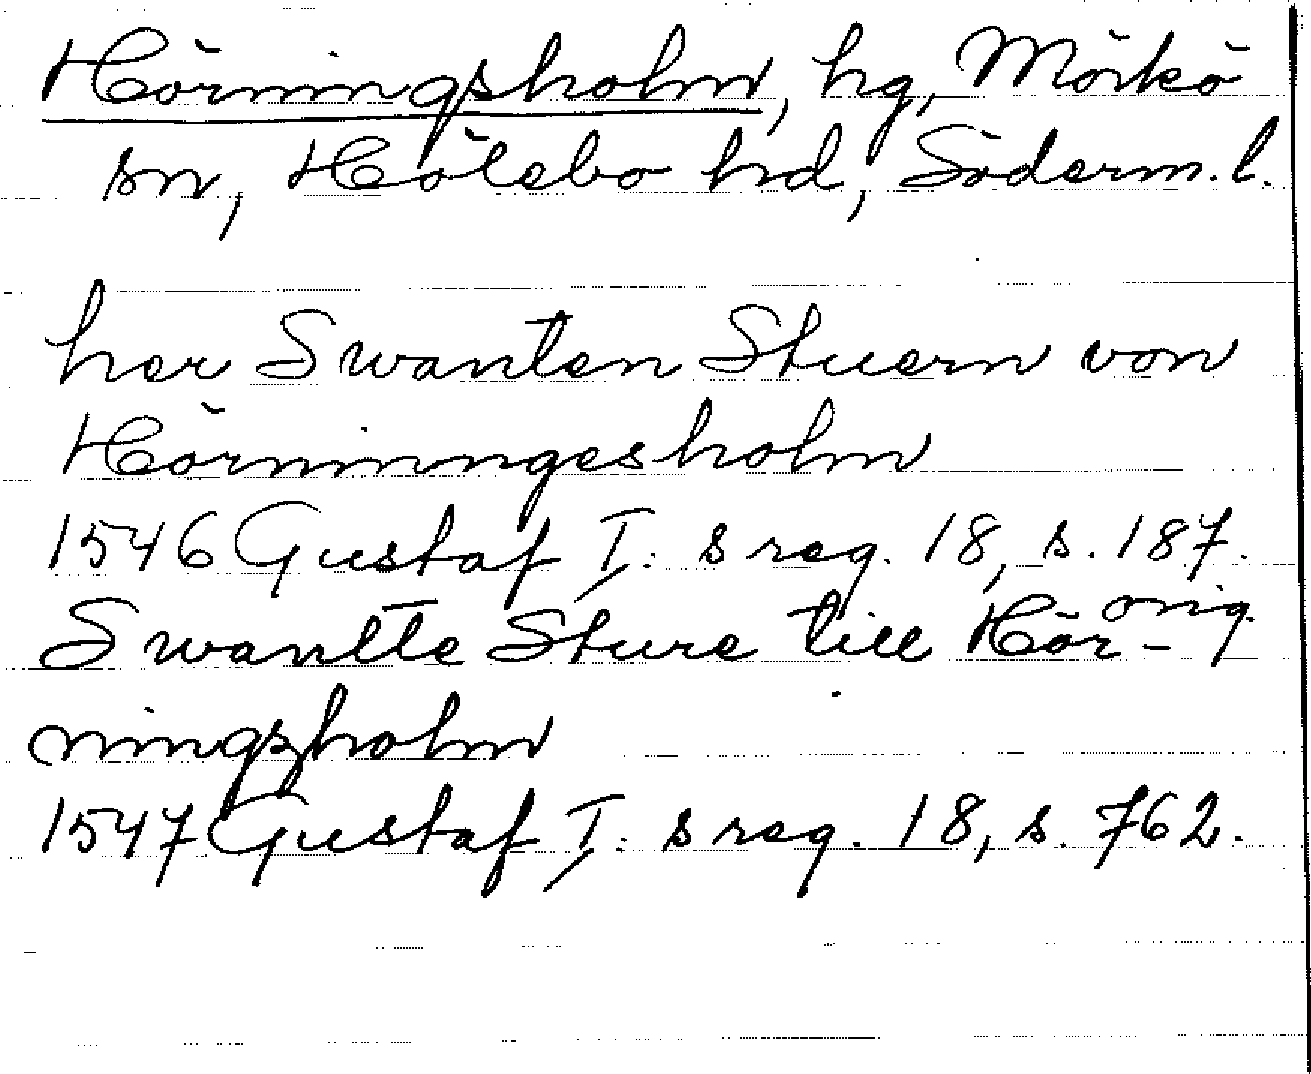 Hörningsholm, hg, Mörkö
sn, Hölebo hd, Söderm. l.
her Swanten Stuern von
Hörnimngesholm
1546 Gustaf I: s reg. 18, s. 187.
orig.
Swantte Sture till Hör-
ningzholm
1547 Gustaf I: s reg. 18, s. 762.